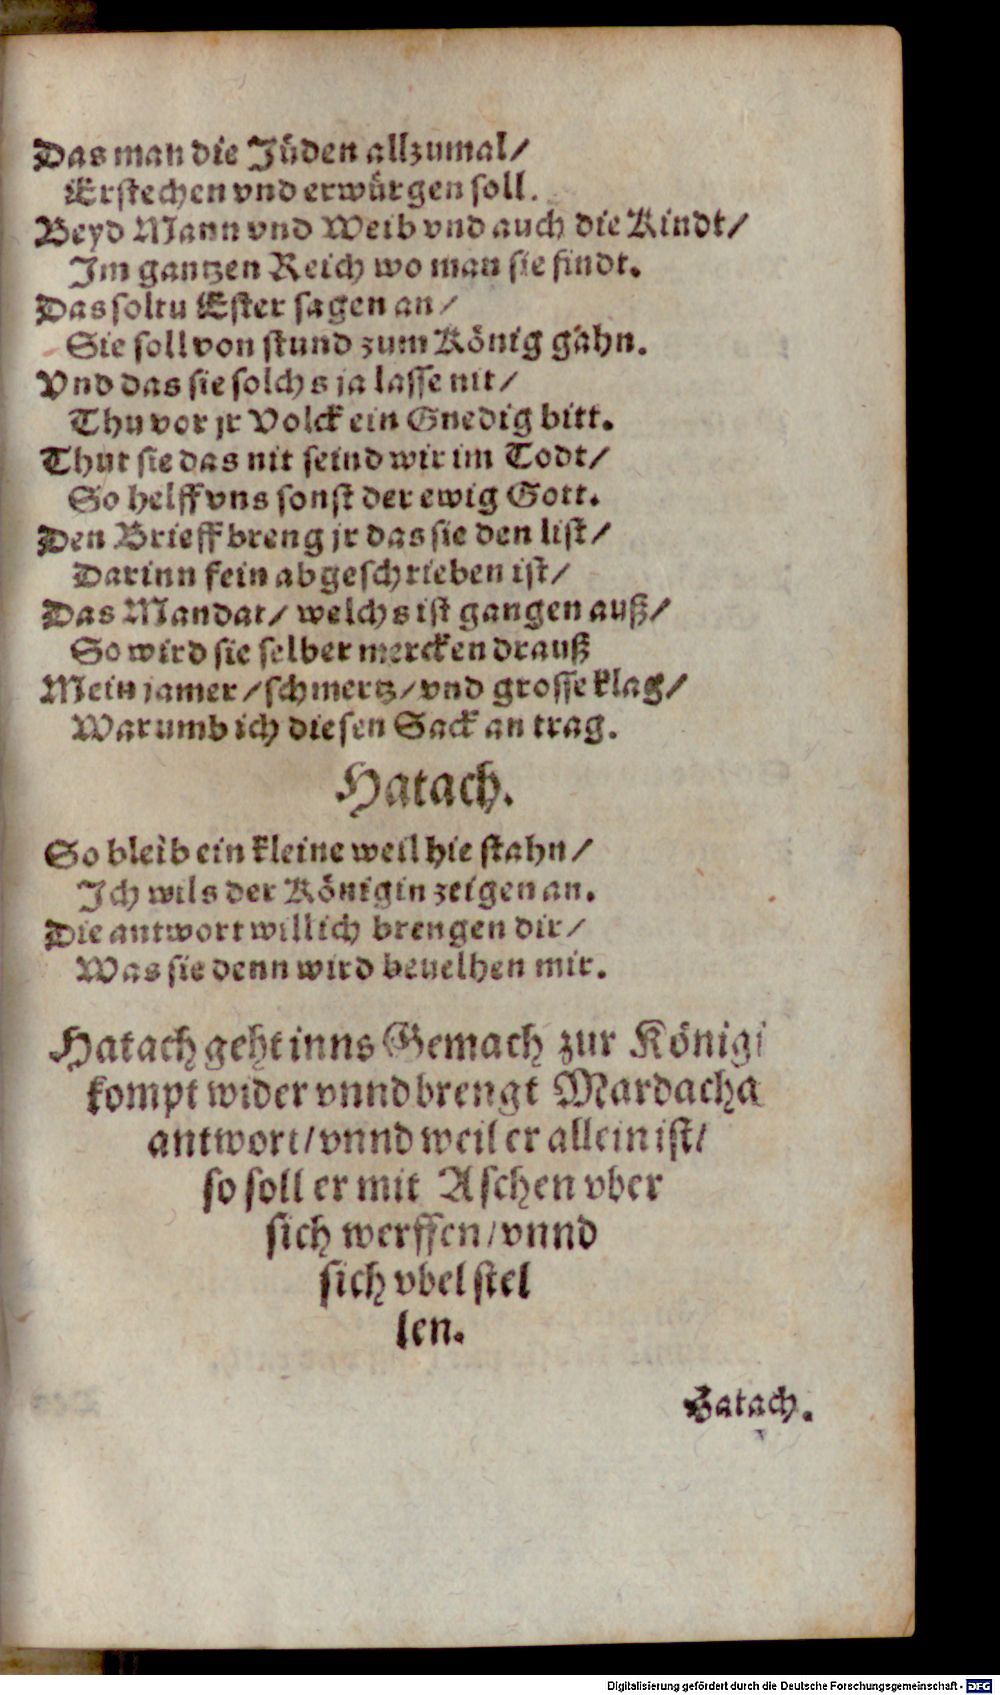 Das man die Jüden allzumal/
Erstechen vnd erwürgen soll.
Beyd Mann vnd Weib vnd auch die Kindt/
Im gantzen Reich wo man sie findt.
Das soltu Ester sagen an/
Sie soll von stund zum König gahn.
Vnd das sie solchs ja lasse nit/
Thu vor jr Volck ein Gnedig bitt.
Thut sie das nit seind wir im Todt/
So helff vns sonst der ewig Gott.
Den Brieff breng jr das sie den list/
Darinn fein abgeschrieben ist/
Das Mandat/ welchs ist gangen auß/
So wird sie selber mercken drauß
Mein jamer/schmertz/vnd grosse klag/
Warumb ich diesen Sack an trag.
Hatach.
So bleib ein kleine weil hie stahn/
Ich wils der Königin zeigen an.
Die antwort willich brengen dir/
Was sie denn wird beuelhen mir.
Hatach geht inns Gemach zur Königi
kompt wider vnnd brengt Mardacha
antwort/vnnd weil er allein ist/
so soll er mit Aschen vber
sich werffen/vnnd
sich vbel stel
len.
Hatach.
Digitalisierung gefördert durch die Deutsche Forschungsgemeinschaft - DFG